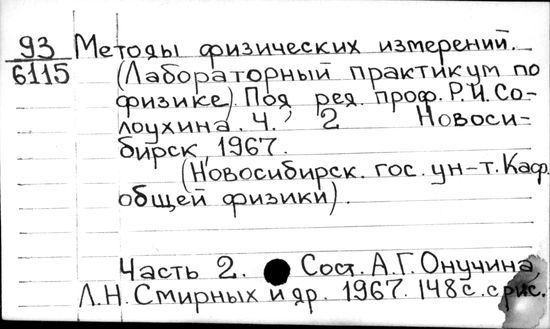 93 Методы физических измерений.
6115 (Лабораторный практикум по
физике). Под ред. проф. Р.И. Со-
лоухина. Ч. 2 Новоси-
бирск, 1967.
(Новосибирск. гос. ун-т. Каф.
общей физики).
Часть 2. Сост. А.Г. Онучина,
Л.Н. Смирных и др. 1967. 148 с. с рис.